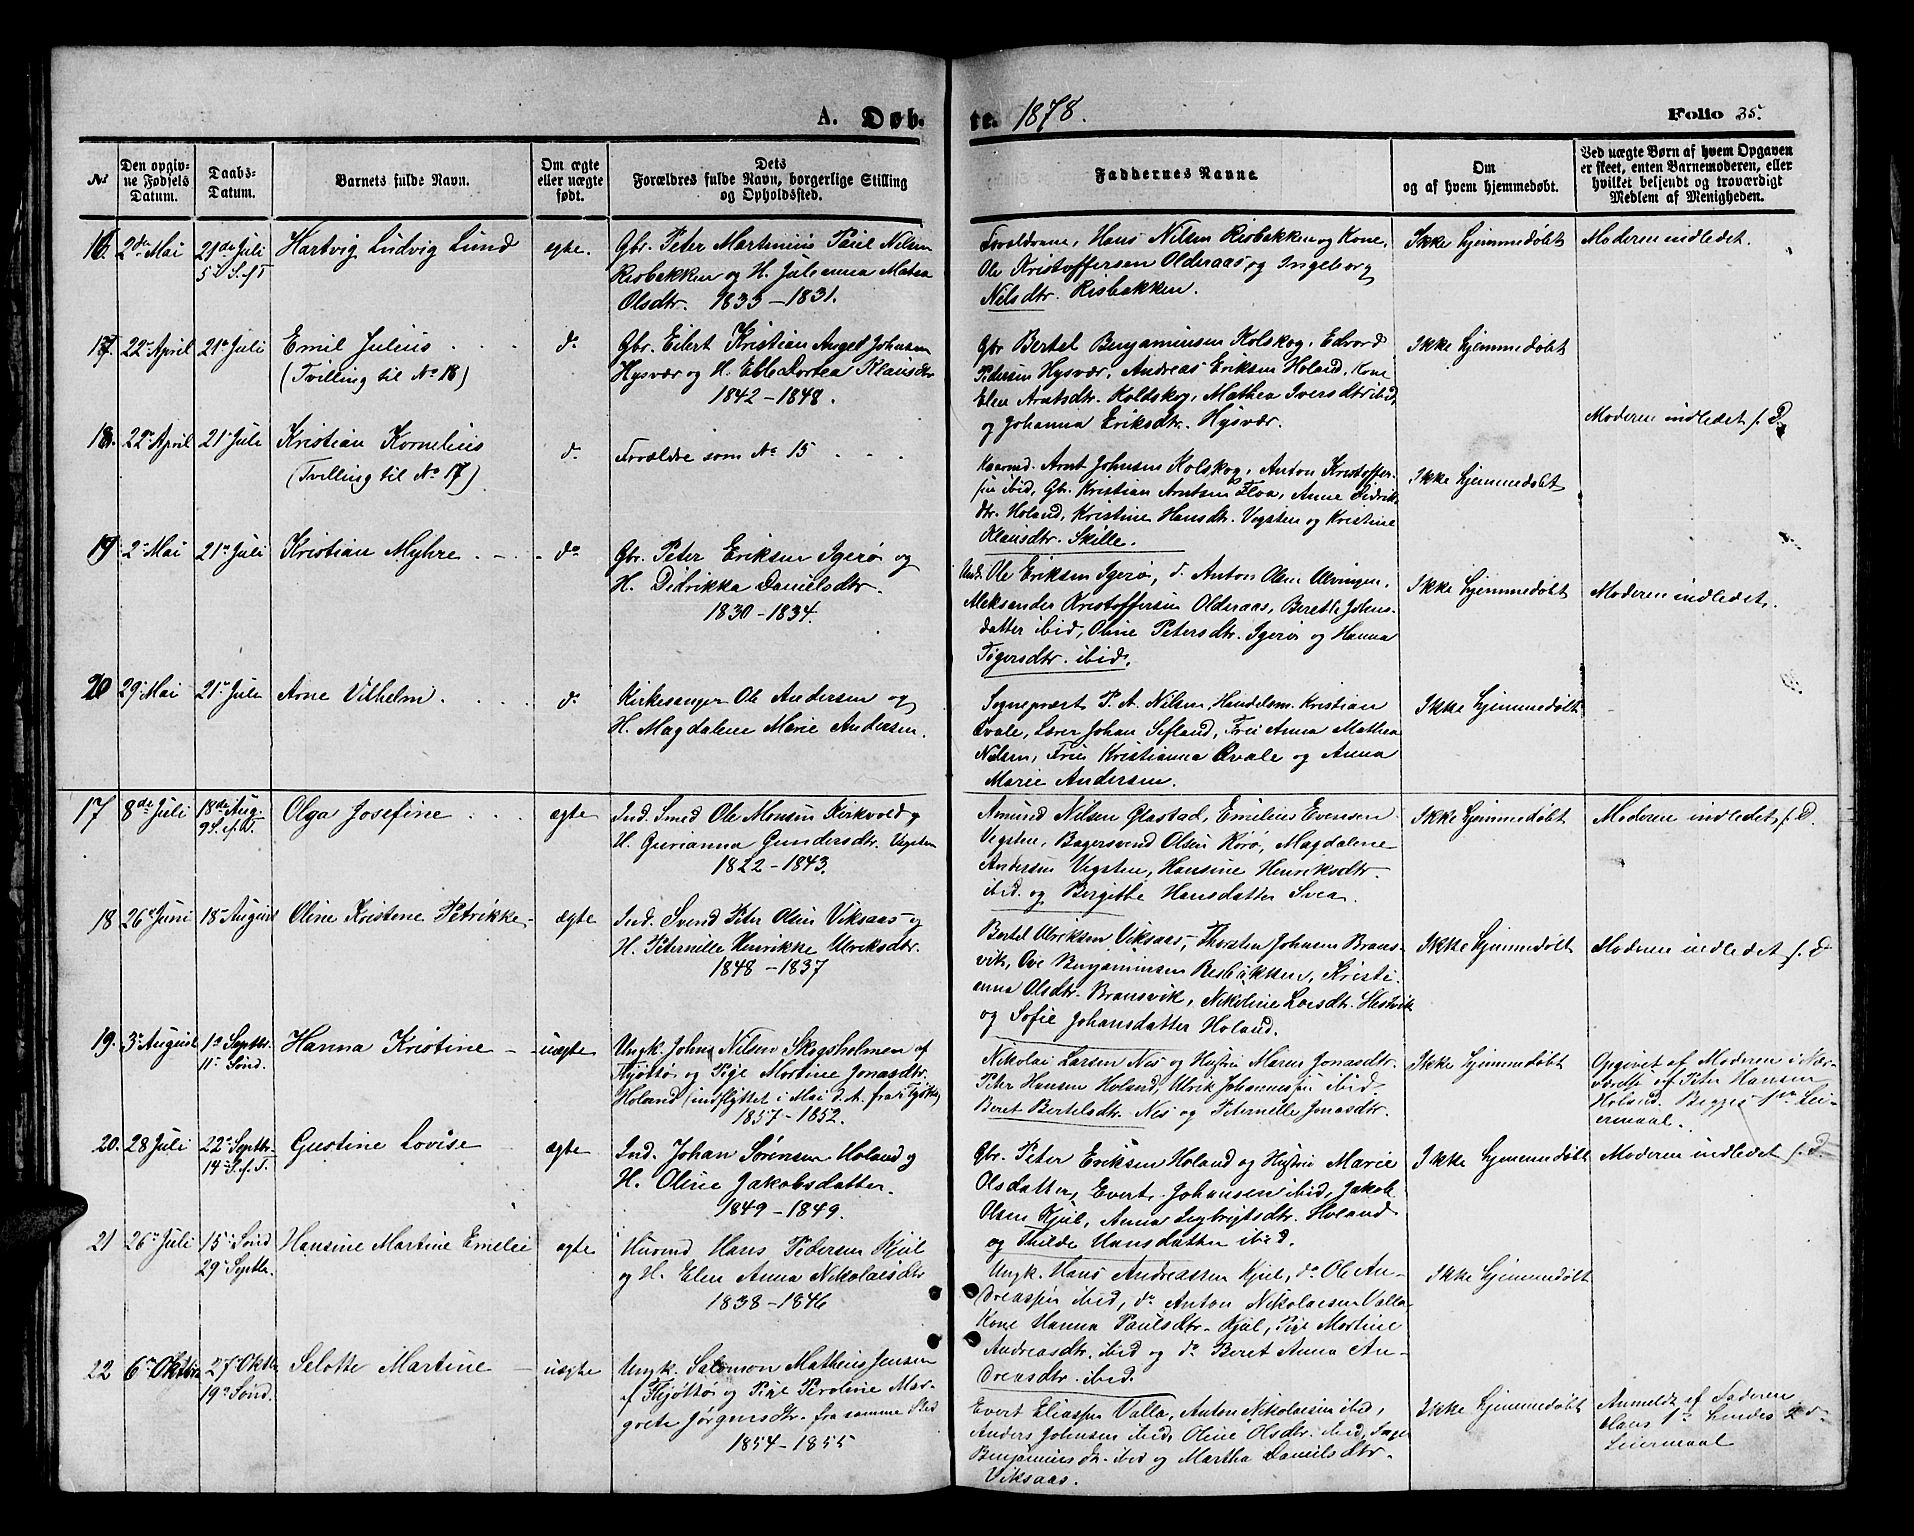 A. Døb-
te. 1878.
Folio 35.
No
Den opgiv-
ne Fødsels
Datum.
Daabs-
Datum.
Barnets fulde Navn.
Om ægte
eller uægte
født.
Dets
Forældres fulde Navn, borgerlige Stilling
og Opholdssted.
Faddernes Navne
Om
og af hvem hjemmedøbt.
Ved uægte Børn af hvem Opgaven
er skeet, enten Barnemoderen, eller
hvilket beljendt og troværdigt
Medlem af Menigheden.
16. 2den Mai
21de Juli
5 S. f T
Hartvig Ludvig Lund
egte.
Gbr. Peter Martinius Paul Nilsen
Risbakken og H. Julianna Matea
Olsdtr. 1833-1831.
Forældrene, Hans Nilsen Risbakken og Kone,
Ole Kristoffersen Olderaas og Ingeborg
Nilsdtr. Risbakken.
Ikke hjemmedøbt
Moderen indledet.
17. 22 April
21 Juli
Emil Julius
(Tvilling til No 18)
do
Gbr. Eilert Kristian Angel Johnsen
Hysvær og H. Ebbe Dortea Klausdtr
1842-1848.
Gbr Bertel Benjaminsen Kolskog, Edvord
Pedersen Hysvær, Andreas Eriksen Holand, Kone
Elen Arntsdtr. Koldskog, Mathea Iversdtr ibid,
og Johanna Eriksdtr. Hysvær.
Ikke hjemmedøbt
Moderen indledet f. D.
18. 22 April
21 Juli
Kristian Kornelius
(Tvilling til No 17)
do
Forældre som No 15
Kaarmd. Arnt Johnsen Kolskog, Anton Kristoffer-
sen ibid, Gbr. Kristian Arntsen Floa, Anne Didriks
dtr. Holand, Kristine Hansdtr. Vegsten og Kristine
Klausdtr. Skille.
Ikke hjemmedøbt
19 2 Mai
21 Juli
Kristian Myhre
do
Gbr. Peter Eriksen Igerø og
H. Didrikka Danielsdtr.
1830-1834.
Ole Eriksen Igerø, d. Anton Olsen Ulvingen,
Aleksander Kristoffersen Olderaas, Berette Johns-
datter ibid, Oline Petersdtr. Igerø og Hanna
Tøgersdtr. ibid.
Ikke hjemmedøbt
Moderen indledet.
20 29 Mai
21 Juli
Arne Vilhelm
do
Kirkesanger Ole Andersen og
H. Magdalene Marie Andersen.
Sogneprest P. A. Nilsen, Handelsm. Kristian
Qvale, Lærer Johan Sefland, Fru Anna Mathea
Nilsen, Fru Kristianna Qvale og Anna
Marie Andersen.
Ikke hjemmedøbt
17 8de Juli
18de Aug.
9 S. f. D.
Olga Josefine
ægte
Ind. Smed Ole Monsen Kirkvold og
H. Gurianna Gundersdtr. Vegsten
1822-1843.
Amund Nilsen Glastad, Emilius Evensen
Vegsten, Bagersvend Olsen Rørø, Magdalene
Andersen Vegsten, Hansine Henriksdtr.
ibid. og Bergitte Hansdatter Svea.
Ikke hjemmedøbt
Moderen indledet f. D.
18 26 Juni
18 August
Oline Kristine Petrikke
ægte
Ind. Svend Peter Olsen Viksaas og
H. Peternille Henrikke Ulriksdtr.
1848-1837
Bertel Ulriksen Viksaas, Thorsten Johnsen Brans-
vik, Ove Benjaminsen Resbakken, Kristi-
anna Olsdtr. Bransvik, Nikoline Larsdtr. Hestvik
og Sofie Johansdatter Holand.
Ikke hjemmedøbt
Moderen indledet f. D
19. 3 August
1 Septbr.
11 Sønd.
Hanna Kristine
uægte
Ungk. John Nilsen Skogsholmen af
Tjøttø og Pige Martine Jonasdtr.
Holand (indflyttet i Mai d. A. fra Tjøttø)
1857-1852.
Nikolai Larsen Nes og Hustru Maren Jonasdtr.
Peter Hansen Holand, Ulrik Johannessen ibid.
Beret Bertelsdtr. Nes og Peternille Jonasdtr.
Ikke hjemmedøbt
Opgivet af Moderen i Nær-
værelse af Peter Hansen
Holand. Begges 1ste Lei-
ermaal.
20. 28 Juli
22 Septbr.
14 S. f. T.
Gustine Lovise
ægte
Ind. Johan Sørensen Holand og
H. Oline Jakobsdatter.
1849-1849.
Gbr. Peter Eriksen Holand og Hustru Marie
Olsdatter, Evert Johansen ibid, Jakob
Olsen Kjul, Anna Ingbrigtsdtr. Holand
og Thilde Hansdatter ibid.
Ikke hjemmedøbt
Moderen indledet f. D
21 26 Juli
15 Sønd
29 Septbr.
Hansine Martine Emelie
egte
Husmd Hans Pedersen Kjul
og H. Elen Anna Nikolaisdtr
1838-1846
Ungk. Hans Andreassen Kjul, do Ole An-
dreassen ibid, do Anton Nikolaisen Valla
Kone Hanna Paulsdtr. Kjul, Pige Martine
Andreasdtr. ibid og do Beret Anna An-
dreasdtr. ibid.
Ikke hjemmedøbt
22 6 Oktbr
27 Oktbr
19 Sønd.
Selotte Martine
uægte
Ungk. Salomon Matheus Jensen
af Tjøttø og Pige Peroline Mar-
grete Jørgensdtr. fra samme Sted
1854-1855
Evert Eliassen Valla, Anton Nikolaisen ibid,
Anders Johnsen ibid, Oline Olsdtr. ibid, Inger
Benjaminsdtr. ibid og Martha Danielsdtr.
Viksaas.
Ikke hjemmedøbt
Anmeldt af Faderen
hans 1ste hendes 2 d
Leiermaal